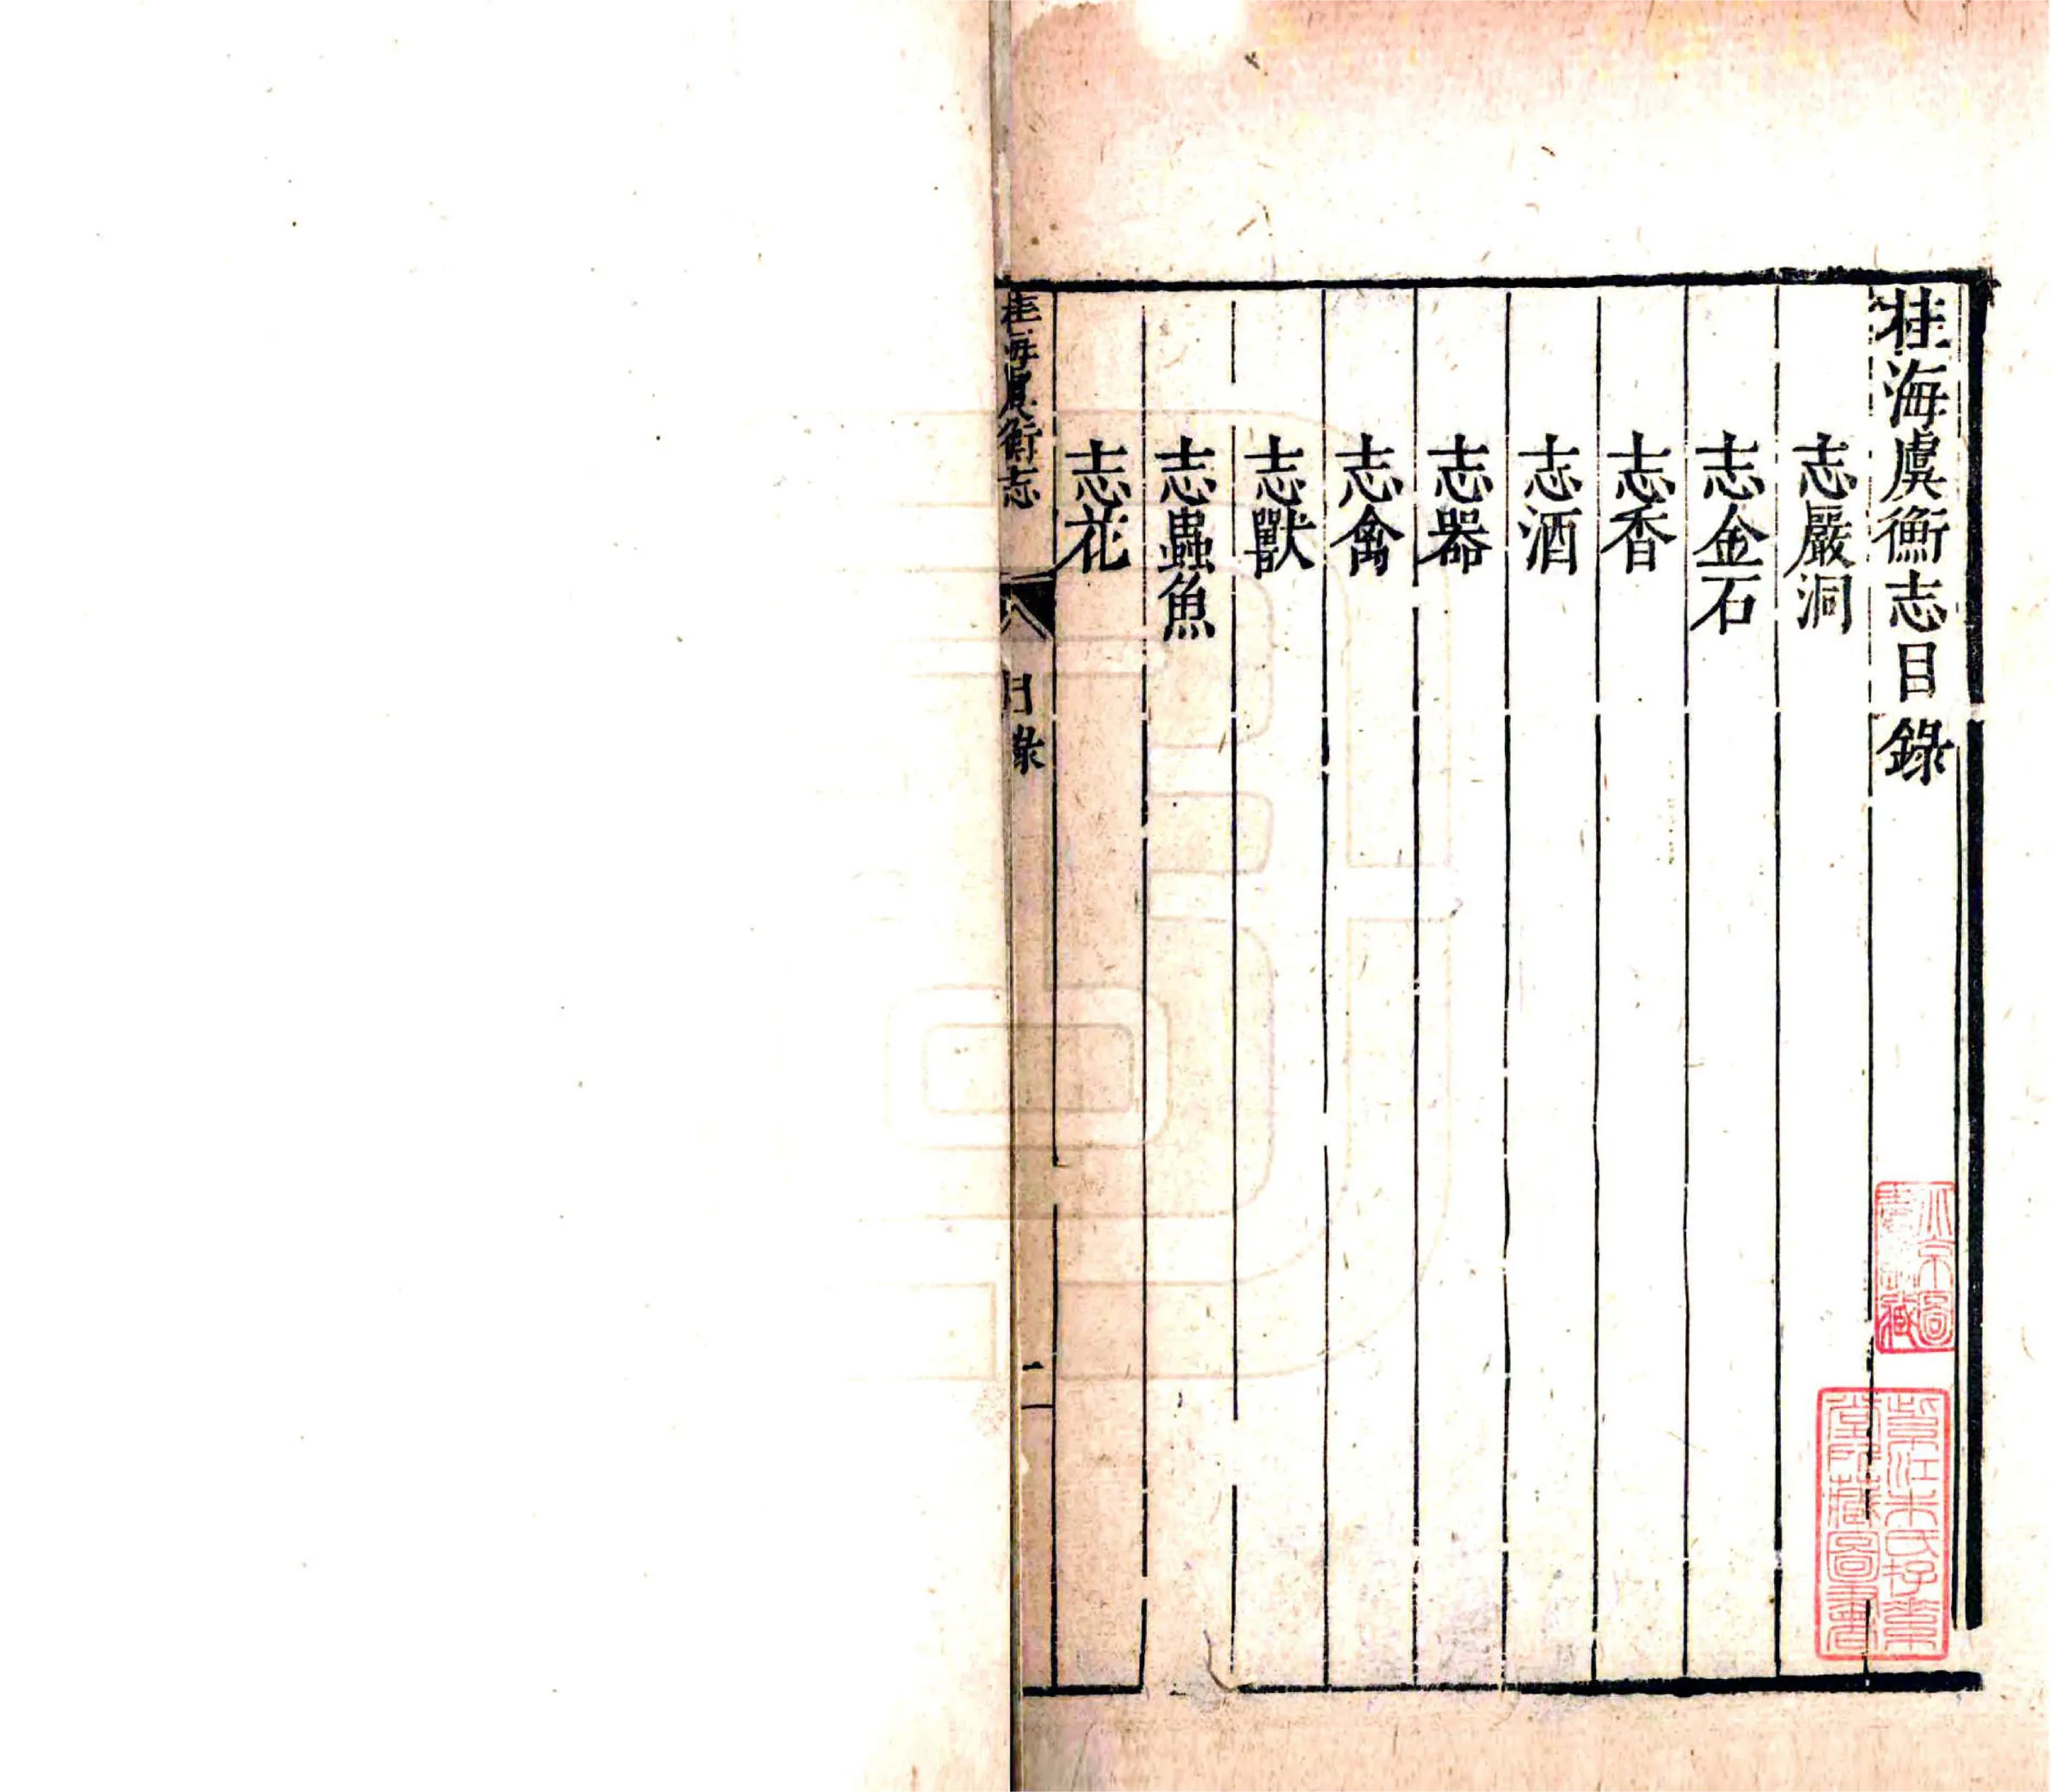 桂海虞衡志目錄
志嚴洞
志金石
志香
志酒
志器
志禽
志獸
志蟲魚
志花
桂海虞衡志
目錄
二